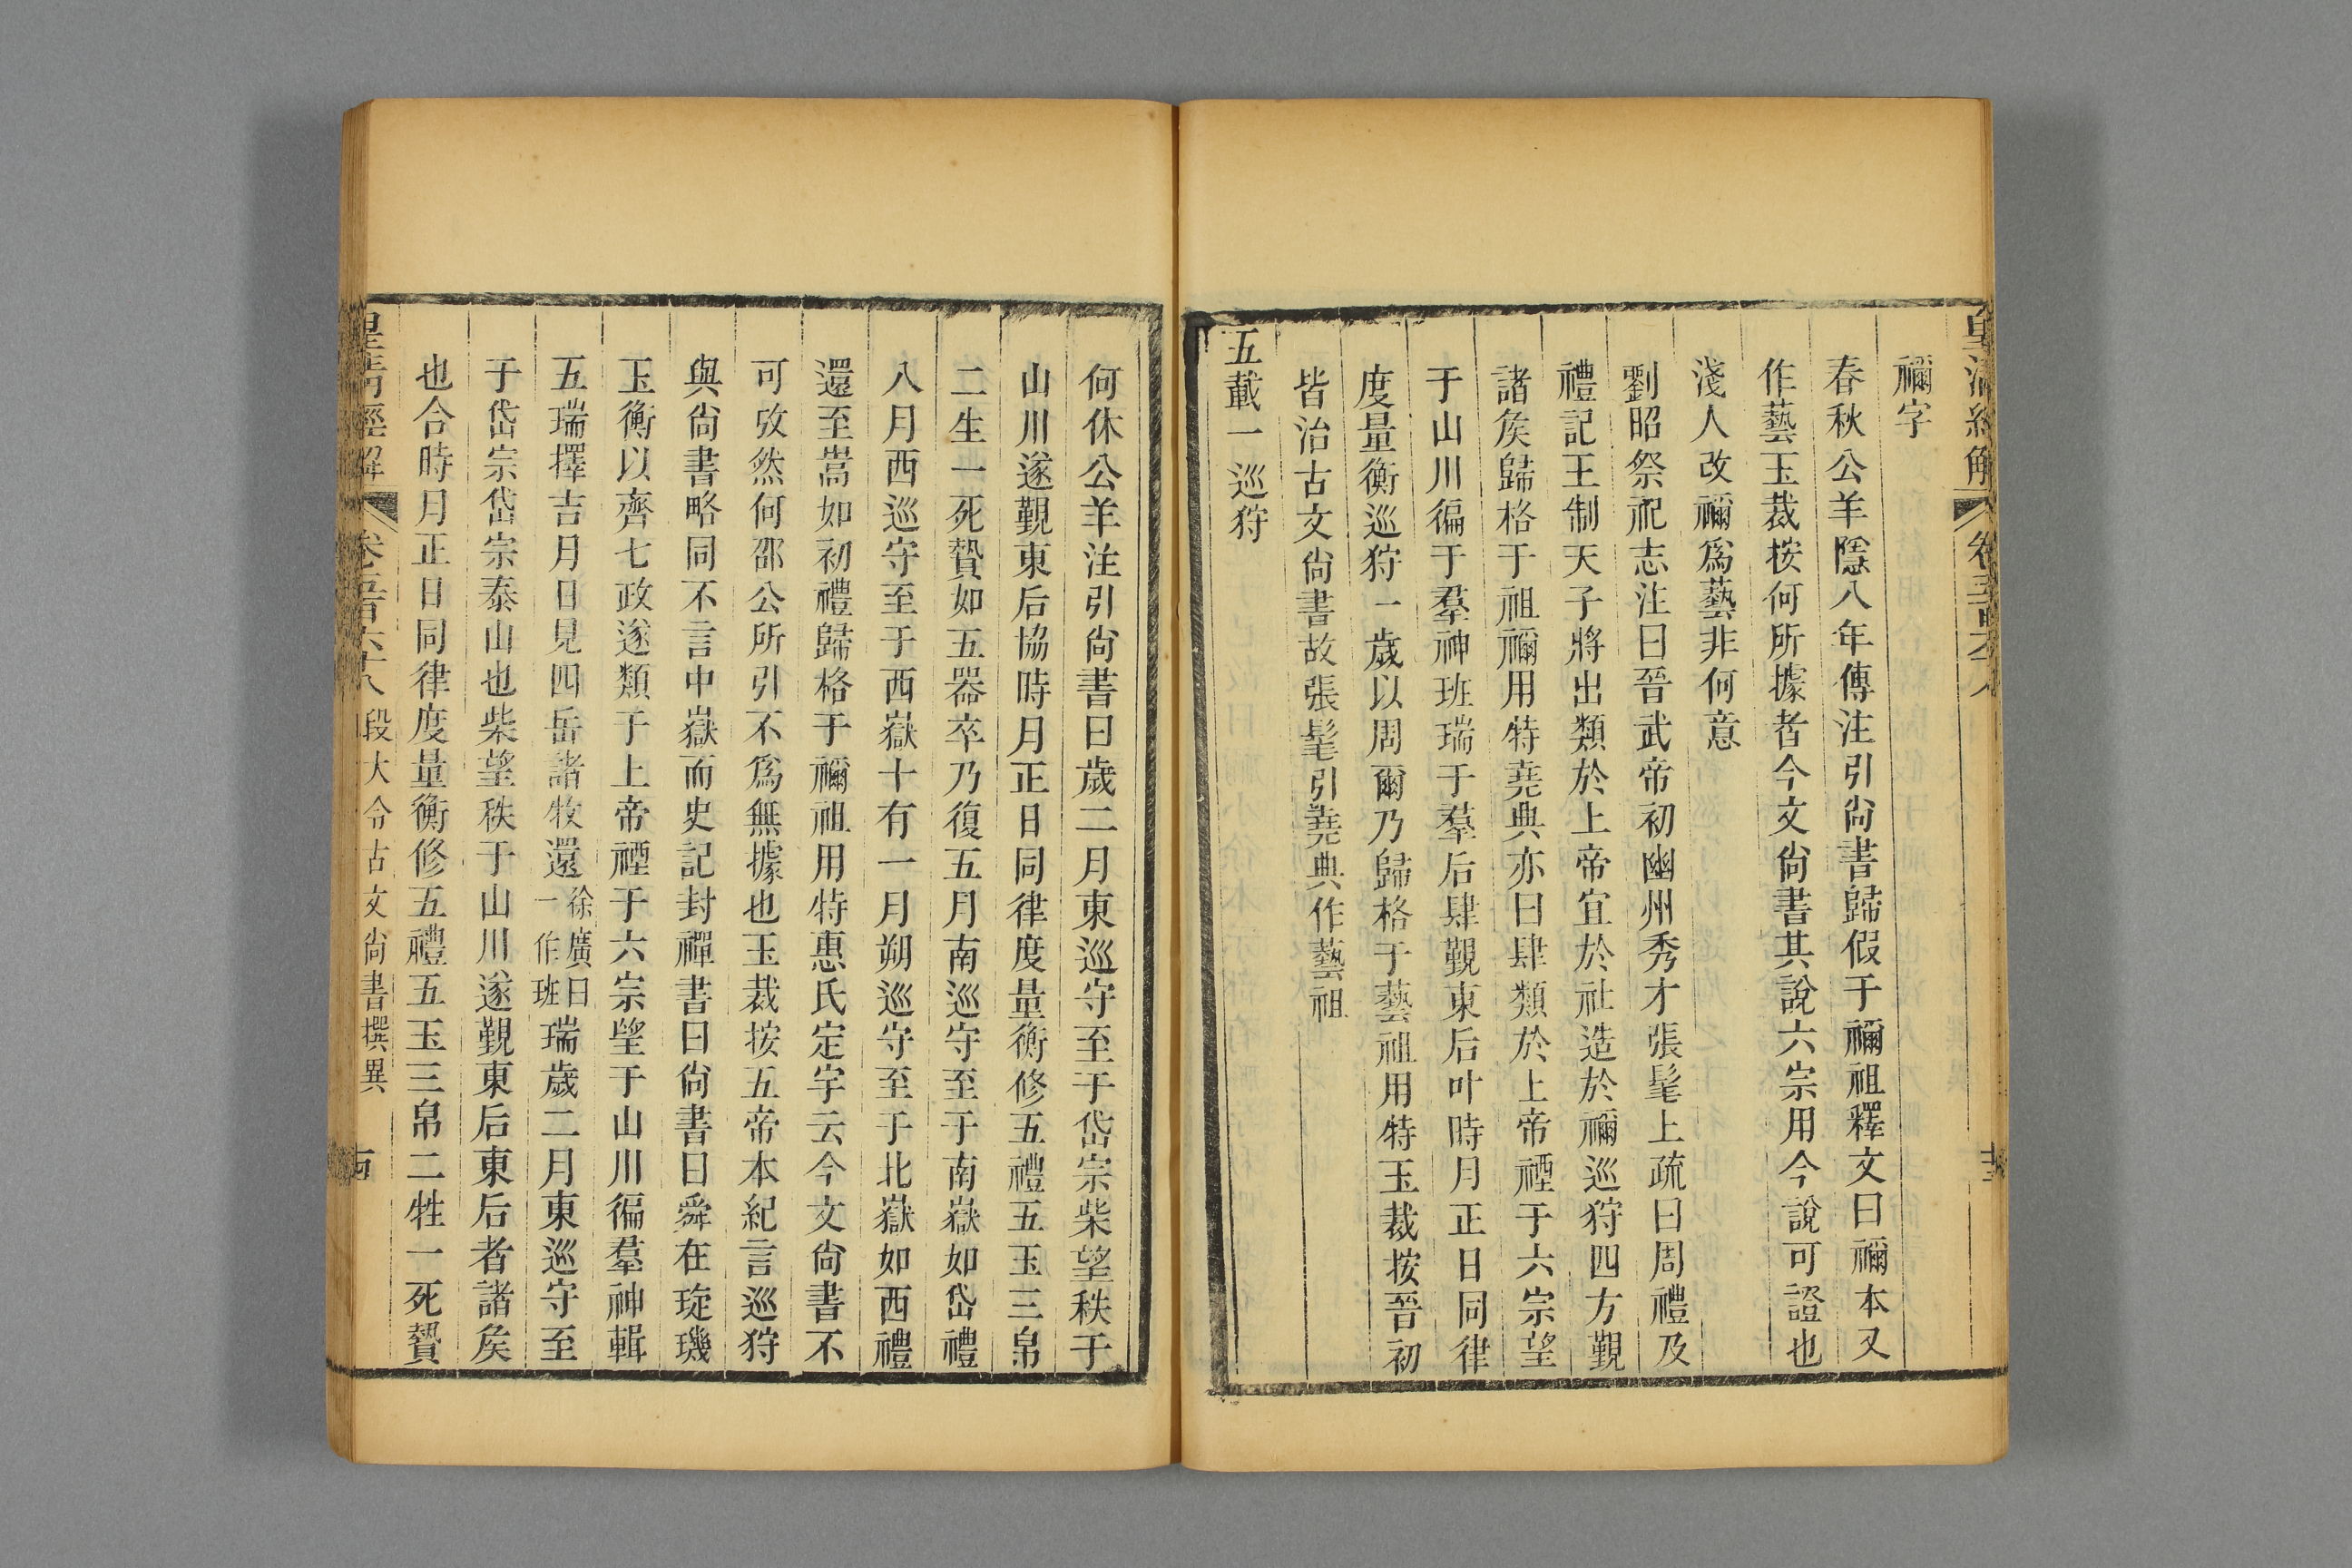 禰字
春秋公羊隱八年傳注引尙書歸假于禰祖釋文曰禰本又
作藝玉裁按何所據者今文尙書其說六宗用今說可證也
淺人改禰爲藝非何意
劉昭祭祀志注曰晉武帝初幽州秀才張髦上疏曰周禮及
禮記王制天子將出類於上帝宜於社造於禰巡狩四方覲
諸矦歸格于祖禰用特堯典亦曰肆類於上帝禋于六宗望
于山川徧于羣神班瑞于羣后肆覲東后叶時月正日同律
度量衡巡狩一歲以周爾乃歸格于藝祖用特玉裁按晉初
皆治古文尙書故張髦引堯典作藝祖
五載一巡狩
何休公羊注引尙書曰歲二月東巡守至于岱宗柴望秩于
山川遂覲東后協時月正日同律度量衡修五禮五玉三帛
二生一死贄如五器卒乃復五月南巡守至于南嶽如岱禮
八月西巡守至于西嶽十有一月朔巡守至于北嶽如西禮
還至嵩如初禮歸格于禰祖用特惠氏定宇云今文尙書不
可攷然何邵公所引不爲無據也玉裁按五帝本紀言巡狩
與尙書略同不言中嶽而史記封禪書曰尙書曰舜在琁璣
玉衡以齊七政遂類于上帝禋于六宗望于山川徧羣神輯
五瑞擇吉月日見四岳諸牧還徐廣曰一作班瑞歲二月東巡守至
于岱宗岱宗泰山也柴望秩于山川遂覲東后東后者諸矦
也合時月正日同律度量衡修五禮五玉三帛二牲一死贄
皇淸經解 卷五百六十八 段大令古文尙書撰異